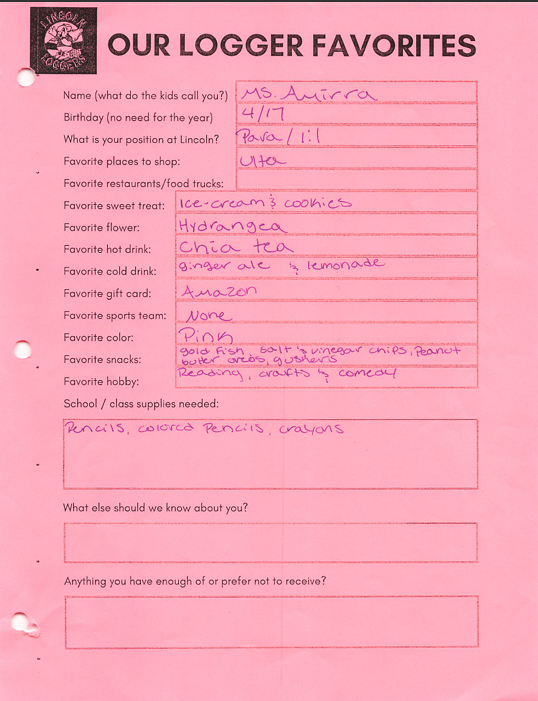 LINCOLN
LOGGERS
OUR LOGGER FAVORITES
Name (what do the kids call you?) Ms. Amirra
Birthday (no need for the year) 4/17
What is your position at Lincoln? Para / 1:1
Favorite places to shop: Ulta
Favorite restaurants/food trucks:
Favorite sweet treat: Ice-cream & cookies
Favorite flower: Hydrangea
Favorite hot drink: Chia tea
Favorite cold drink: ginger ale & lemonade
Favorite gift card: Amazon
Favorite sports team: None
Favorite color: Pink
Favorite snacks: gold fish, salt & vinegar chips, Peanut
butter oreos, gushers
Favorite hobby: Reading, crafts & comedy
School / class supplies needed:
Pencils, colored Pencils, crayons
What else should we know about you?
Anything you have enough of or prefer not to receive?